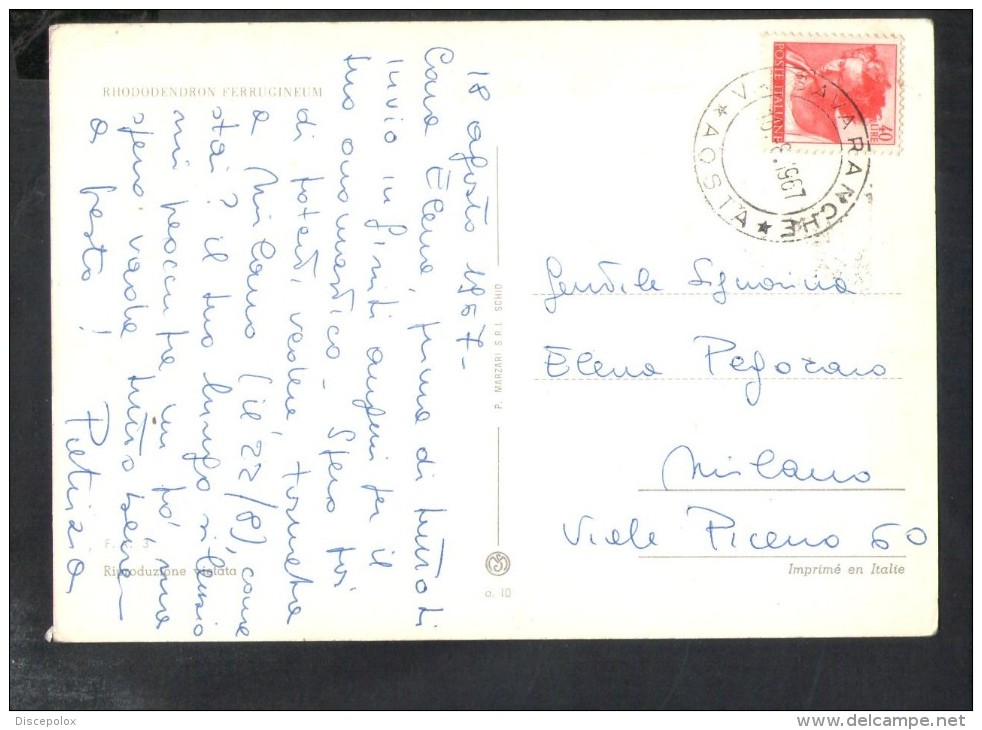 RHODODENDRON FERRUGINEUM
18 agosto 1967 -
Cara Elena, prima di tutto ti
invio infiniti auguri per il
tuo onomastico - Spero tu
di poterti vedere
a Milano (il 22/8), come
stai? il tuo lungo silenzio
mi preoccupa un pó, ma
spero vada tutto bene -
a presto!
P. MARZARI S.R.L. SCHIO
a. 10
Riproduzione vietata
POSTE ITALIANE
LIRE 40
VARANCHE
★ AOSTA ★
8.1967
Gentile Signorina
Elena Pegoraro
Milano
Viale Piceno 60
Imprimé en Italie
Discepolox
www.delcampe.net